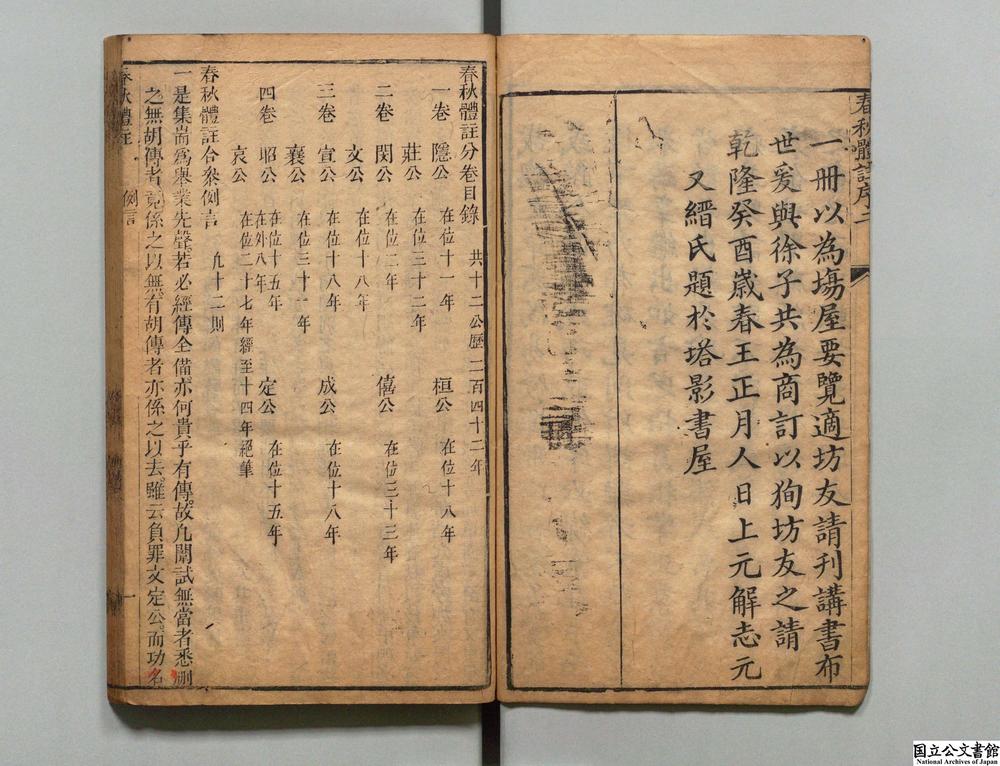 春秋體註序 二
一冊以為塲屋要覽適坊友請刊講書布
世爰與徐子共為商訂以狥坊友之請
乾隆癸酉歲春王正月人日上元解志元
又縉氏題於塔影書屋
春秋體註分卷目錄 共十二公歷二百四十二年
一卷 隱公 在位十一年 桓公 在位十八年
莊公 在位三十二年
二卷 閔公 在位二年 僖公 在位三十三年
文公 在位十八年
三卷 宣公 在位十八年 成公 在位十八年
襄公 在位三十一年
四卷 昭公 在位十五年 在外八年 定公 在位十五年
哀公 在位二十七年經至十四年絕筆
春秋體註合叅例言 九十二則
一是集耑為舉業先聲若必經傳全備亦何貴乎有傳故凡闈試無當者悉刪
之無胡傳者竟係之以無有胡傳者亦係之以去雖云負罪文定公而功名
春秋體註 例言 一
国立公文書館
National Archives of Japan